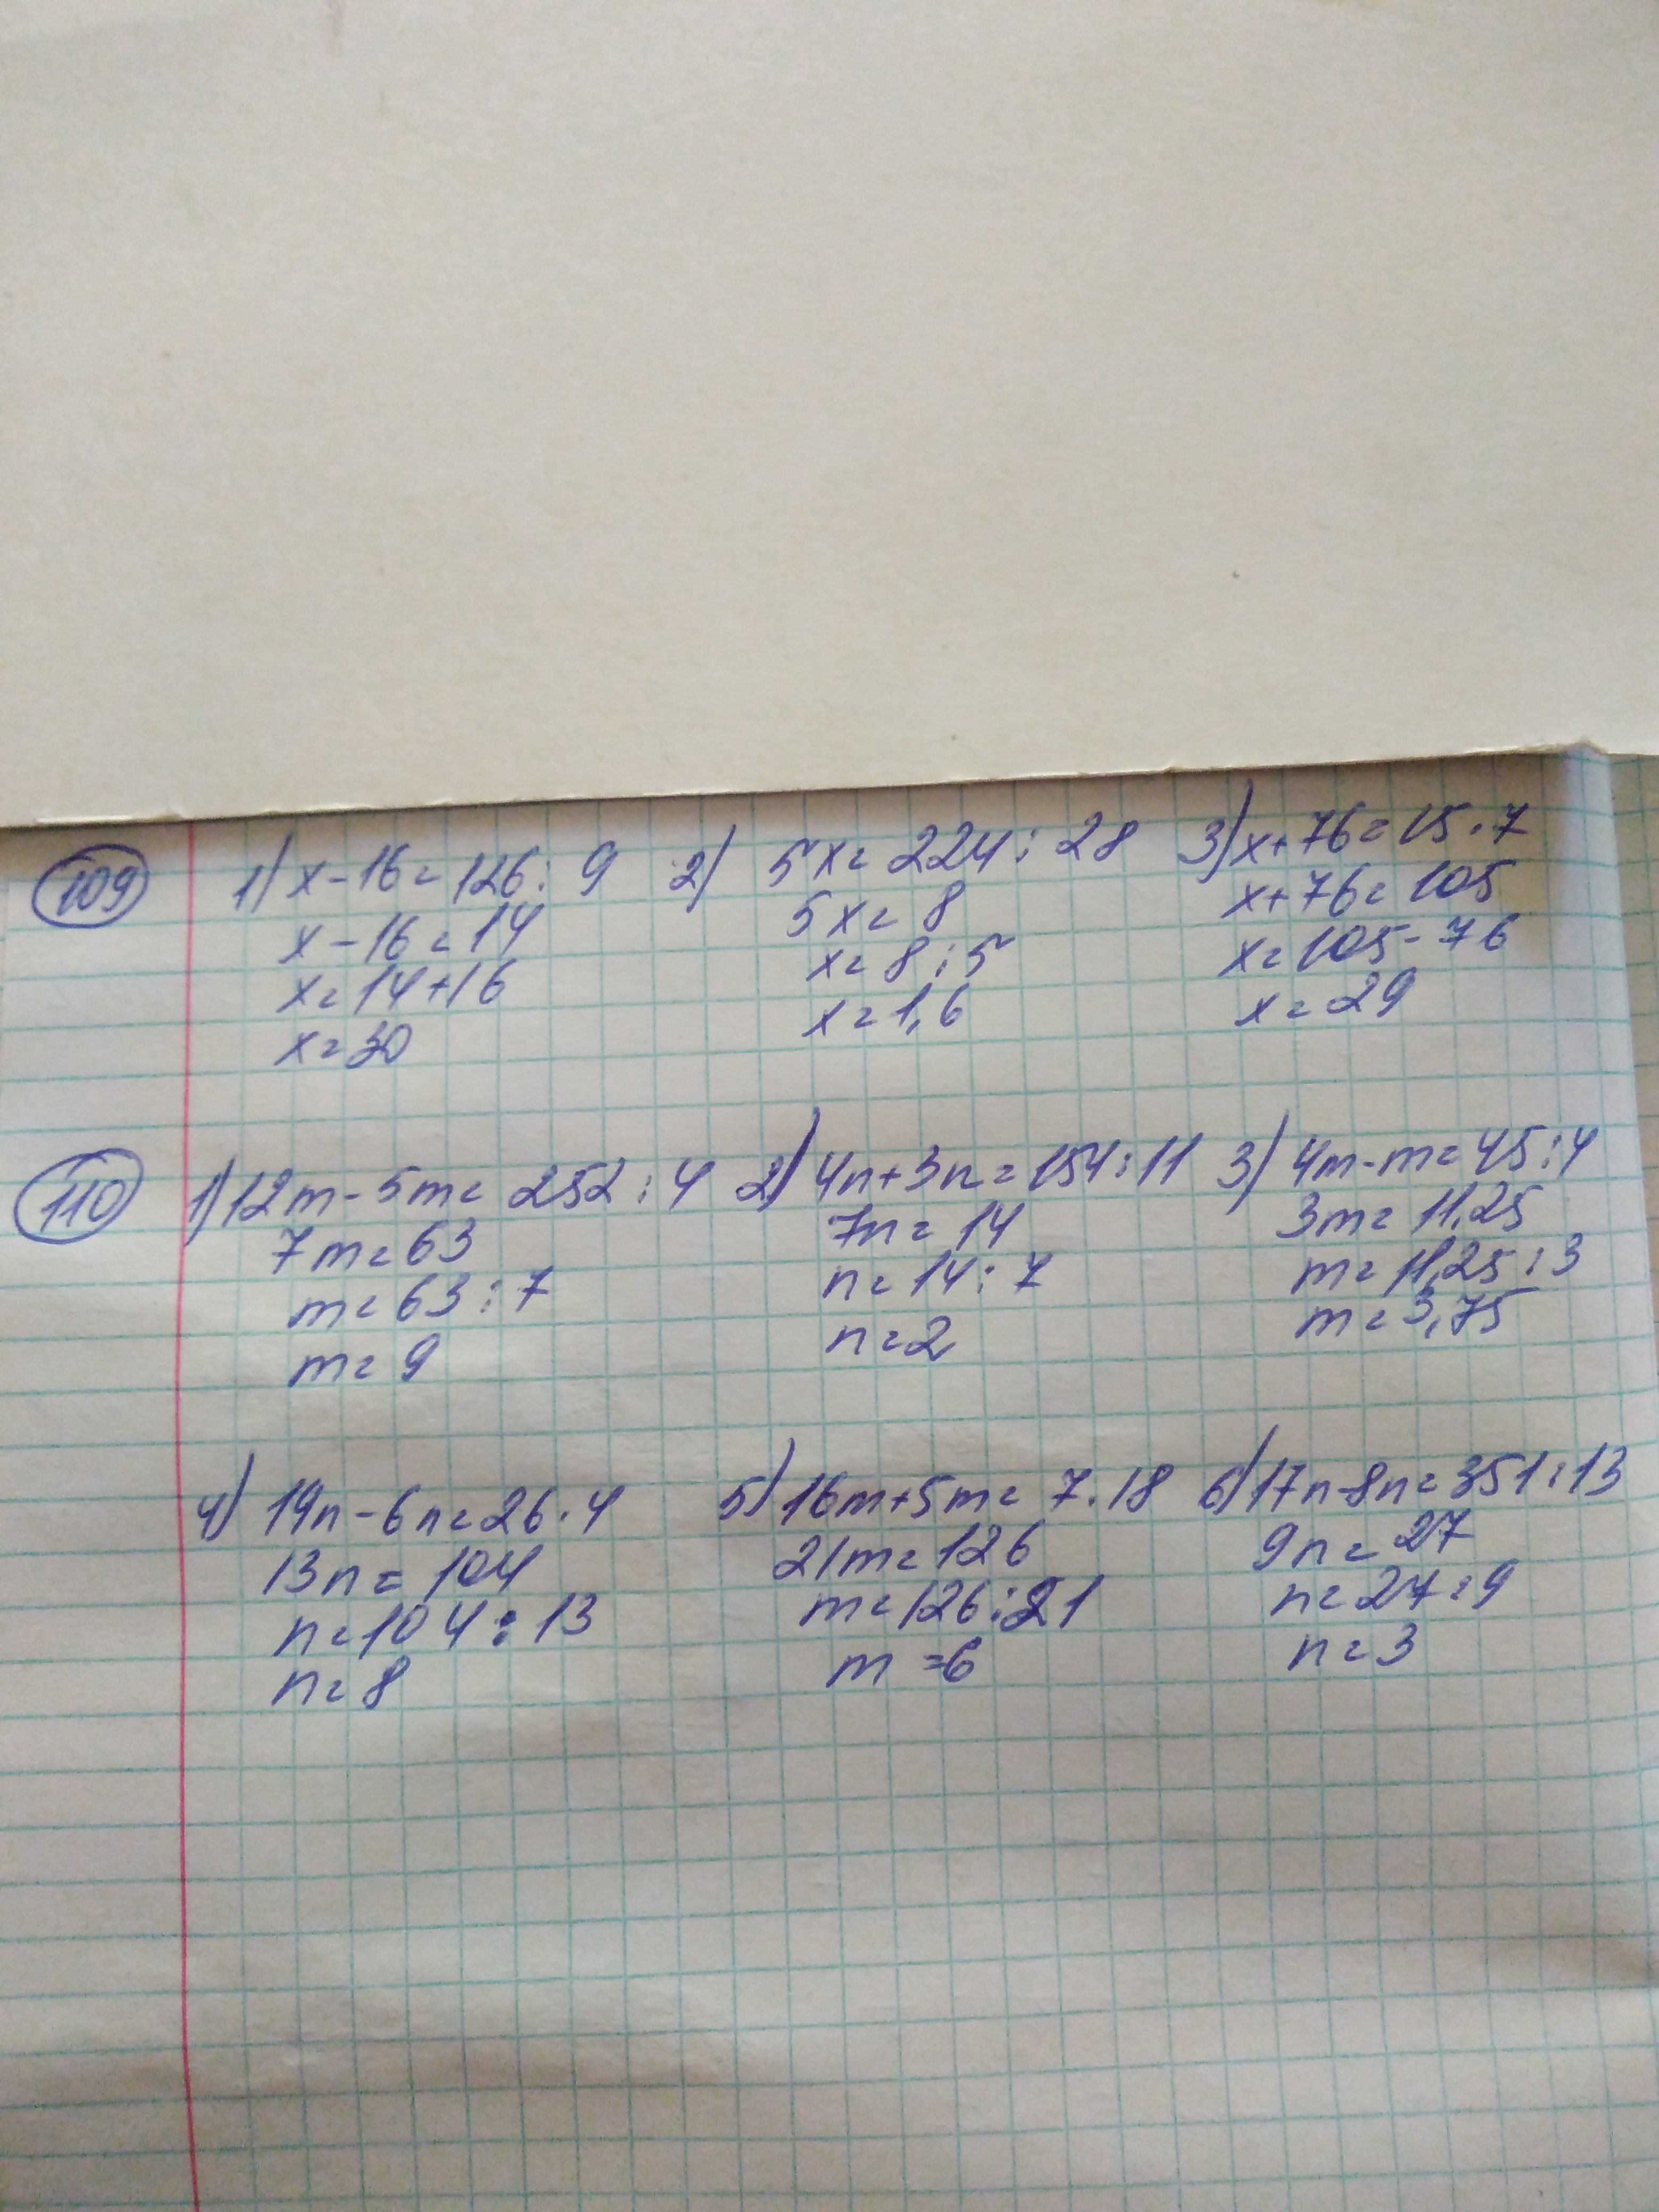 109
1) x-16=126:9
x-16=14
x=14+16
x=30
2) 5x=224:28
5x=8
x=8:5
x=1,6
3) x+76=15·7
x+76=105
x=105-76
x=29
110
1) 12m-5m=252:4
7m=63
m=63:7
m=9
2) 4n+3n=154:11
7n=14
n=14:7
n=2
3) 4m-m=45:4
3m=11,25
m=11,25:3
m=3,75
4) 19n-6n=26·4
13n=104
n=104:13
n=8
5) 16m+5m=7·18
21m=126
m=126:21
m=6
6) 17n-8n=351:13
9n=27
n=27:9
n=3